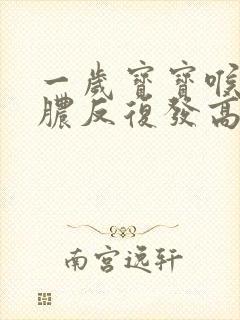 一歲寶寶喉
膿反復發高
南宮逸轩